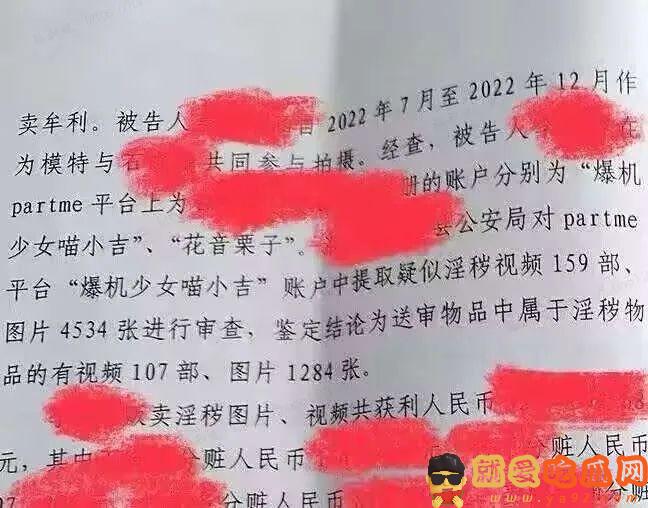 卖牟利。被告人 2022年7月至2022年12月作
为模特与石 共同参与拍摄。经查，被告人 在
partme平台上为 册的账户分别为“爆机
少女喵小吉”、“花音栗子”。 公安局对partme
平台“爆机少女喵小吉”账户中提取疑似淫秽视频159部、
图片4534张进行审查，鉴定结论为送审物品中属于淫秽物
品的有视频107部、图片1284张。
卖淫秽图片、视频共获利人民币
元，其中 分赃人民币 分赃人民币
分赃人民币 分赃
就爱吃瓜网